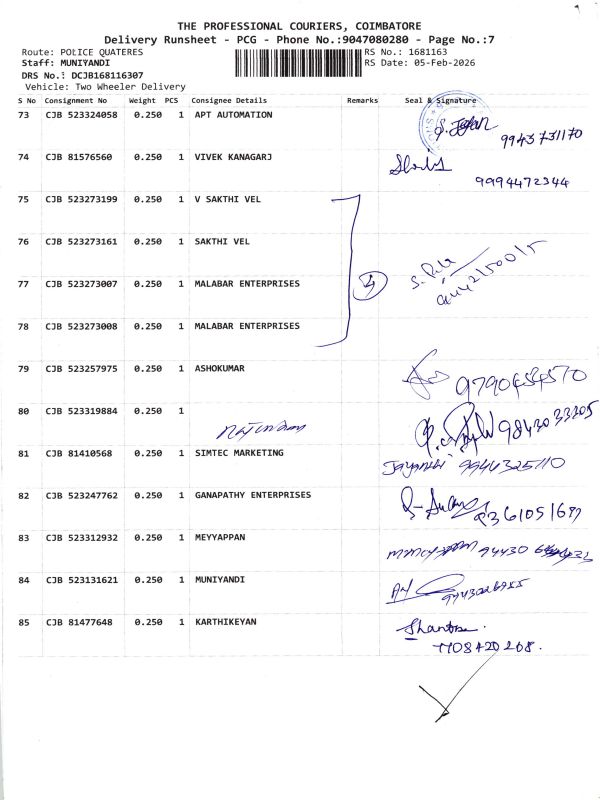 THE PROFESSIONAL COURIERS, COIMBATORE
Delivery Runsheet - PCG - Phone No.:9047080280 - Page No.:7
Route: POLICE QUATERES RS No.: 1681163
Staff: MUNIYANDI RS Date: 05-Feb-2026
DRS No.: DCJB168116307
Vehicle: Two Wheeler Delivery
S No Consignment No Weight PCS Consignee Details Remarks Seal & Signature
73 CJB 523324058 0.250 1 APT AUTOMATION
9943731170
74 CJB 81576560 0.250 1 VIVEK KANAGARJ
9994472344
75 CJB 523273199 0.250 1 V SAKTHI VEL
76 CJB 523273161 0.250 1 SAKTHI VEL
77 CJB 523273007 0.250 1 MALABAR ENTERPRISES 4
78 CJB 523273008 0.250 1 MALABAR ENTERPRISES
79 CJB 523257975 0.250 1 ASHOKUMAR
80 CJB 523319884 0.250 1
9843033205
81 CJB 81410568 0.250 1 SIMTEC MARKETING
9944325110
82 CJB 523247762 0.250 1 GANAPATHY ENTERPRISES
83 CJB 523312932 0.250 1 MEYYAPPAN
94430
84 CJB 523131621 0.250 1 MUNIYANDI
85 CJB 81477648 0.250 1 KARTHIKEYAN
7708420268.